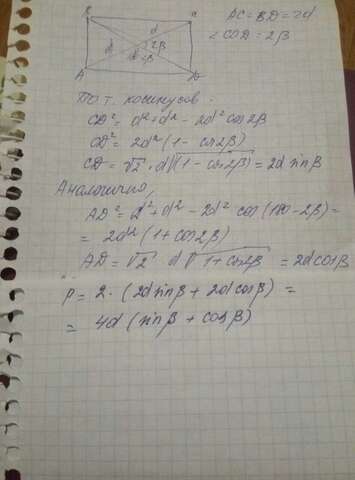 B C AC = BD = 2d
d d 2β ∠COD = 2β
A D
По т. косинусов.
CD² = d² + d² - 2d² cos 2β
CD² = 2d² (1 - cos 2β)
CD = √2 · d √(1 - cos 2β) = 2d sin β
Аналогично,
AD² = d² + d² - 2d² cos (180 - 2β) =
= 2d² (1 + cos 2β)
AD = √2 · d √1 + cos 2β = 2d cos β
P = 2 · (2d sin β + 2d cos β) =
= 4d (sin β + cos β)